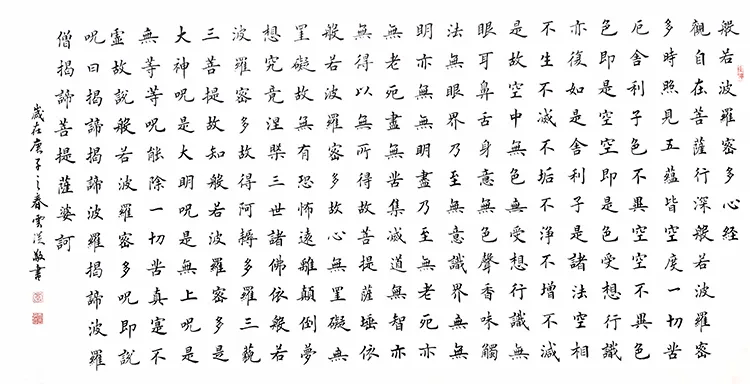 般若波羅密多心經
觀自在菩薩行深般若波羅密
多時照見五蘊皆空度一切苦
厄舍利子色不異空空不異色
色即是空空即是色受想行識
亦復如是舍利子是諸法空相
不生不滅不垢不淨不增不減
是故空中無色無受想行識無
眼耳鼻舌身意無色聲香味觸
法無眼界乃至無意識界無無
明亦無無明盡乃至無老死亦
無老死盡無苦集滅道無智亦
無得以無所得故菩提薩埵依
般若波羅密多故心無罣礙無
罣礙故無有恐怖遠離顛倒夢
想究竟涅槃三世諸佛依般若
波羅密多故得阿耨多羅三藐
三菩提故知般若波羅密多是
大神呪是大明呪是無上呪是
無等等呪能除一切苦真寔不
虛故說般若波羅密多呪即說
呪曰揭諦揭諦波羅揭諦波羅
僧揭諦菩提薩婆訶
歲在庚子之春雲從敬書